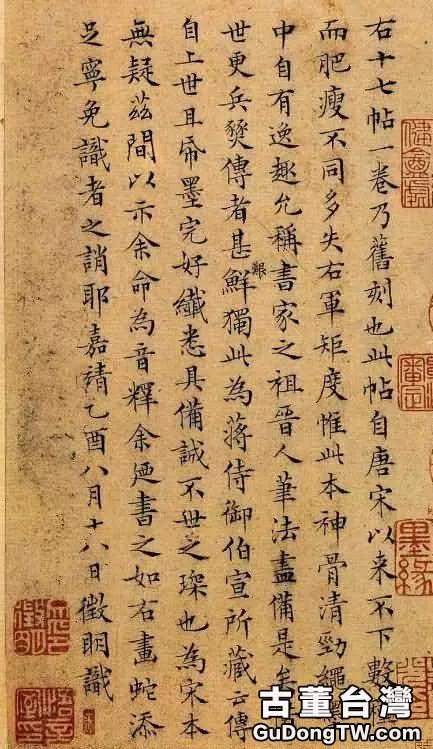 右十七帖一卷乃舊刻也此帖自唐宋以来不下數
而肥瘦不同多失右軍矩度惟此本神骨清勁繩
中自有逸趣允稱書家之祖晉人筆法盡備是矣
世更兵燹傳者甚鮮獨此為蔣侍御伯宣所藏云傳
艱
自上世且帋墨完好纖悉具備誠不世之琛也為宋本
無疑茲間以示余命為音釋余廼書之如右畫蛇添
足寧免識者之誚耶嘉靖乙酉八月十八日徵明識
墨緣
古董台灣
GuDongTW.com